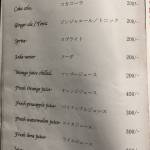 Coke zero コカコーラ 200/-
Ginger ale / Tonic ジンジャエール/トニック 200/-
Sprite スプライト 200/-
Soda water ソーダ 200/-
Mango juice chilled マンゴージュース 300/-
Fresh Orange juice オレンジジュース 400/-
Fresh pineapple juice パイナップルジュース 300/-
Fresh watermelon juice スイカジュース 300/-
Fresh lime juice ライムジュース 300/-